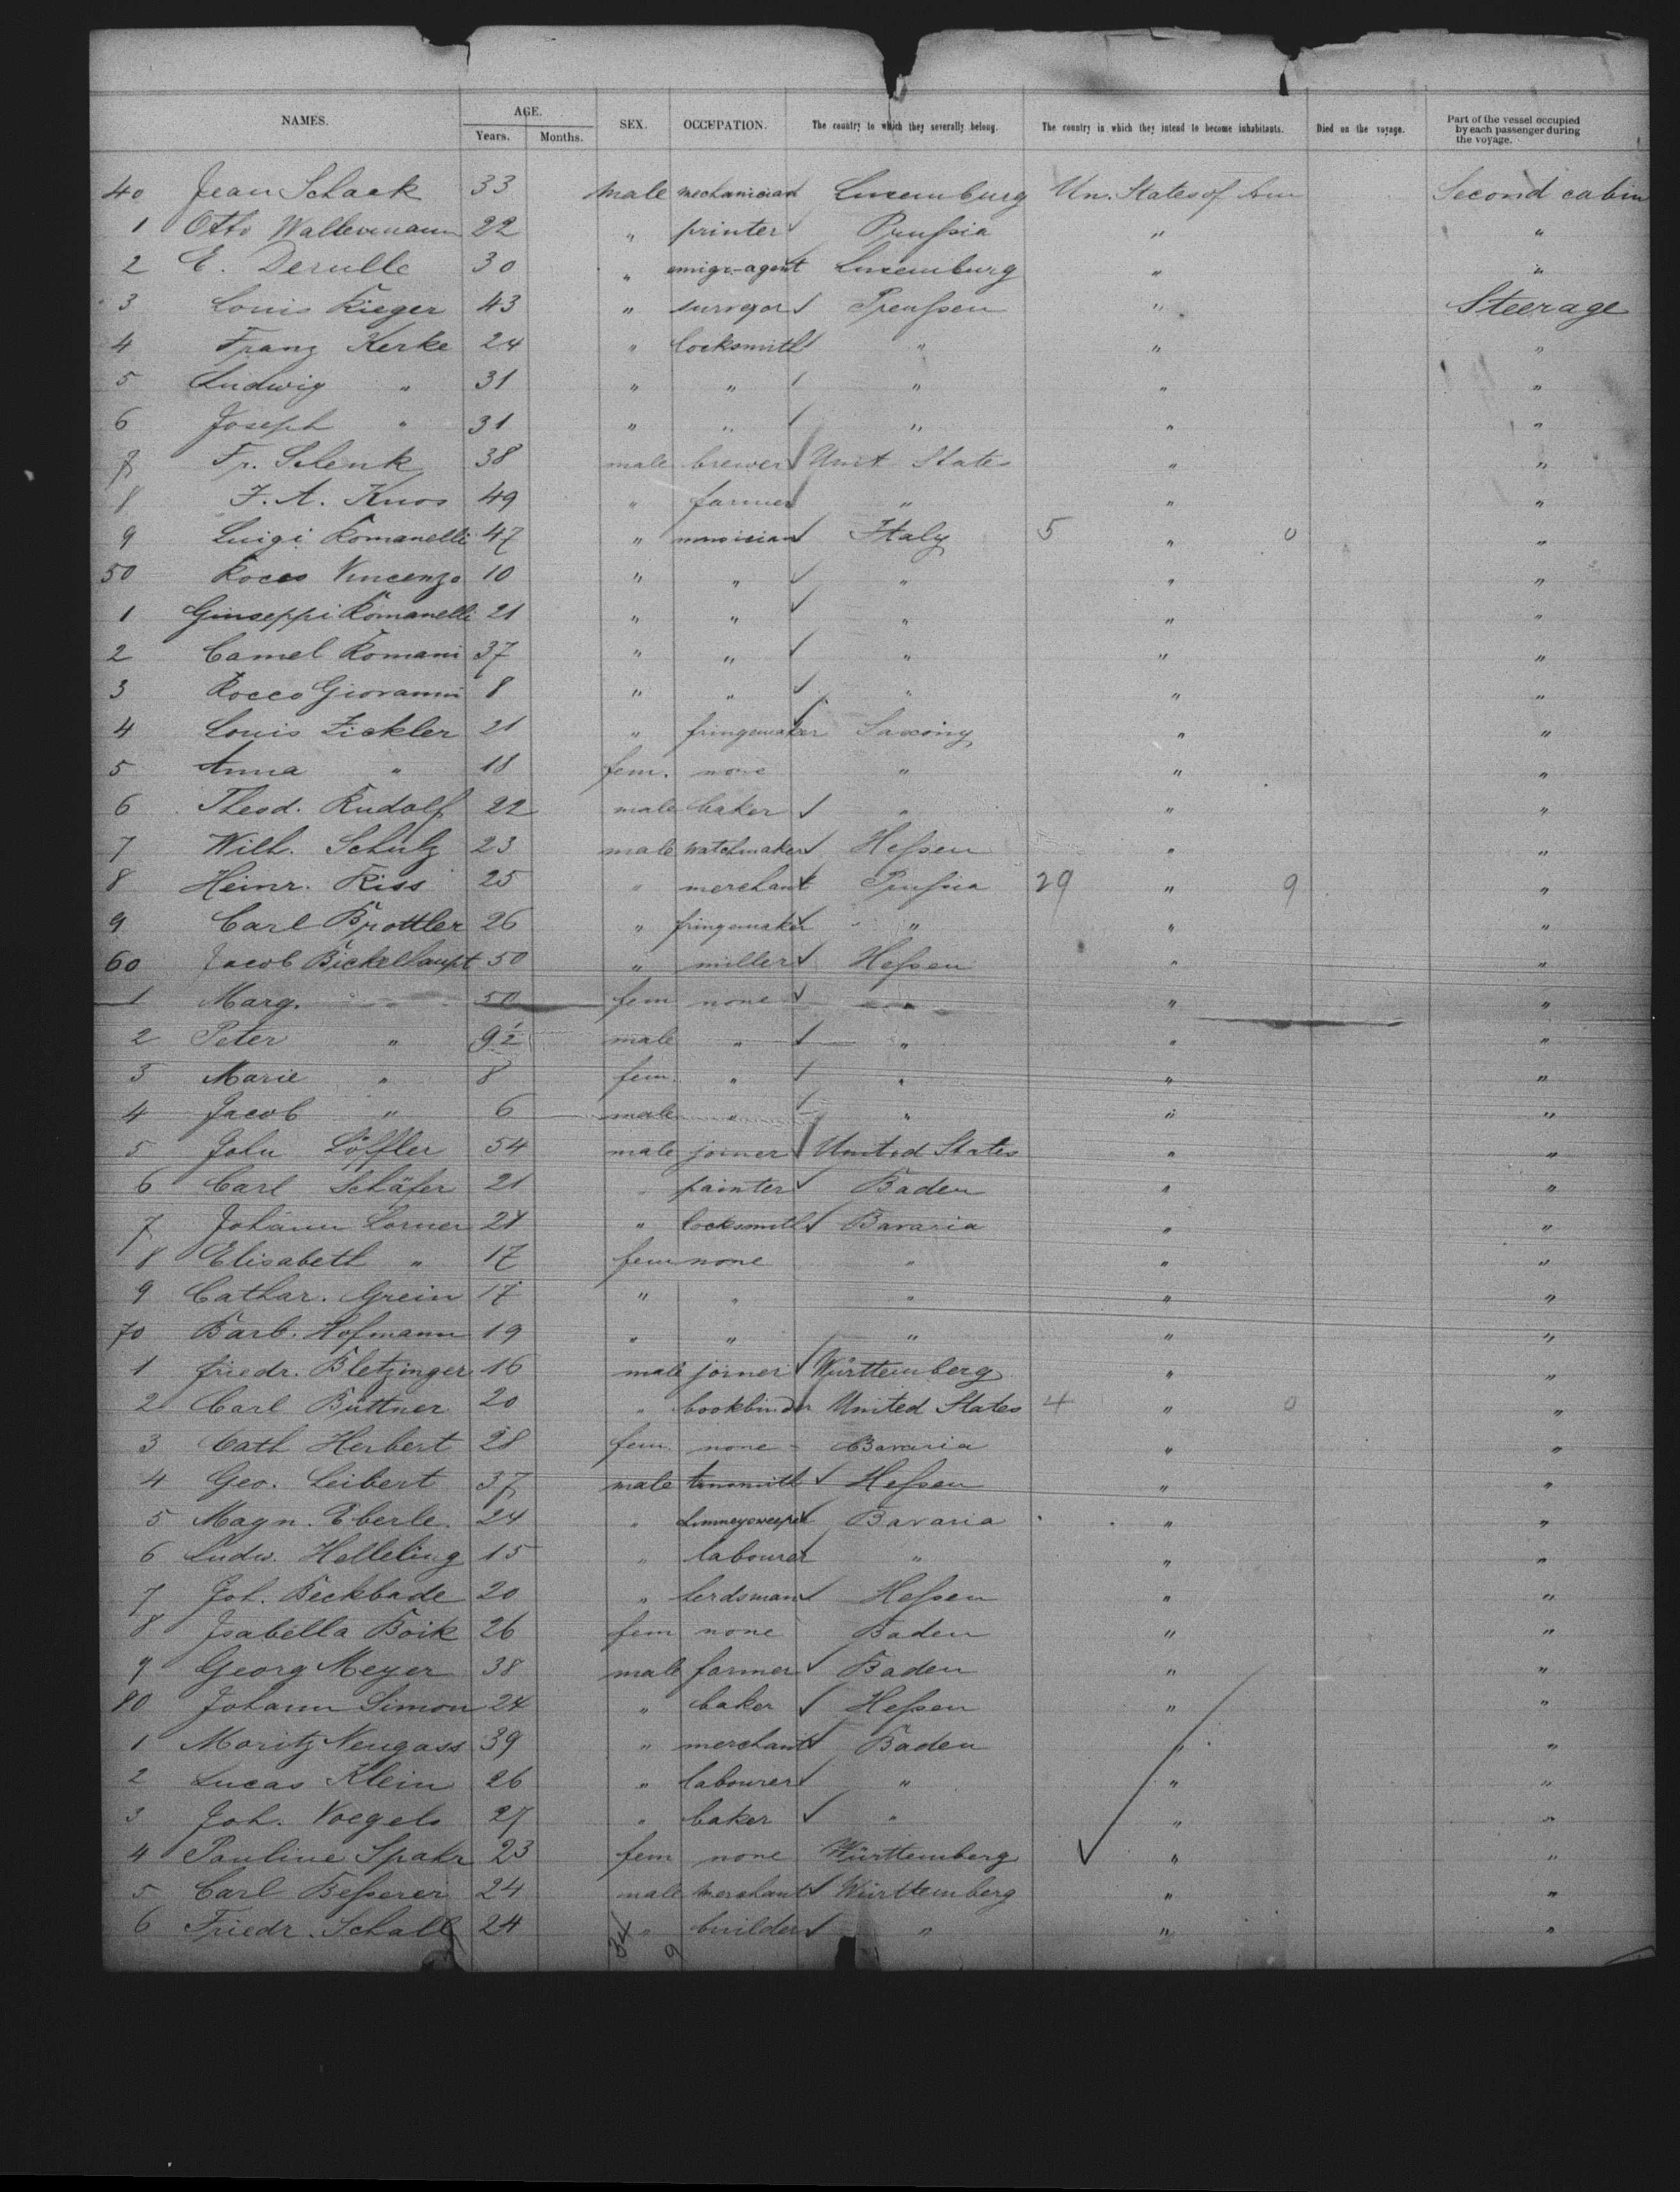 NAMES. AGE. Years. Months. SEX. OCCUPATION. The country to which they severally belong. The country in which they intend to become inhabitants. Died on the voyage. Part of the vessel occupied by each passenger during the voyage.
40 Jean Schack 33 Male mechanician Luxemburg Un. States of Am Second cabin
1 Otto Wallermann 22 " printer Prussia " "
2 E. Derulle 30 " emigr-agent Luxemburg " "
3 Louis Rieger 43 " surveyor Preussen " Steerage
4 Franz Kerke 24 " locksmith " " "
5 Ludwig " 31 " " " " "
6 Joseph " 31 " " " " "
7 Fr. Schenk 38 male brewer Unit States " "
8 F. A. Knos 49 " farmer " " "
9 Luigi Romanelli 47 " musician Italy 5 " 0 "
50 Rocco Vincenzo 10 " " " " "
1 Giuseppi Romanelli 21 " " " " "
2 Camel Romani 37 " " " " "
3 Rocco Giovanni 8 " " " " "
4 Louis Zickler 21 " fringemaker Saxony " "
5 Anna " 18 fem. none " " "
6 Theod. Rudolf 22 male baker " " "
7 Wilh. Schulz 23 male watchmaker Hessen " "
8 Heinr. Riss 25 " merchant Prussia 29 " 9 "
9 Carl Brottler 26 " fringemaker " " "
60 Jacob Bickelhaupt 50 " miller Hessen " "
1 Marg. " 50 fem none " " "
2 Peter " 9½ male " " " "
3 Marie " 8 fem. " " " "
4 Jacob " 6 male " " " "
5 John Löffler 54 male joiner United States " "
6 Carl Schäfer 21 " painter Baden " "
7 Johann Lorner 24 " locksmith Bavaria " "
8 Elisabeth " 17 fem none " " "
9 Cathar. Grein 17 " " " " "
70 Barb. Hofmann 19 " " " " "
1 Friedr. Bletzinger 16 male joiner Württemberg " "
2 Carl Büttner 20 " bookbinder United States 4 " 0 "
3 Cath Herbert 28 fem. none Bavaria " "
4 Geo. Leibert 37 male tinsmith Hessen " "
5 Magn. Eberle. 24 " Bavaria " "
6 Ludw. Helleling 15 " labourer " " "
7 Joh. Beckbade 20 " herdsman Hessen " "
8 Isabella Boik 26 fem none Baden " "
9 Georg Meyer 38 male farmer Baden " "
80 Johann Simon 24 " baker Hessen " "
1 Moritz Neugass 39 " merchant Baden " "
2 Lucas Klein 26 " labourer " " "
3 Joh. Voegels 27 " baker " " "
4 Pauline Spahr 23 fem none Württemberg " "
5 Carl Besserer 24 male merchant Württemberg " "
6 Friedr. Schall 24 " builder " " "
34 9